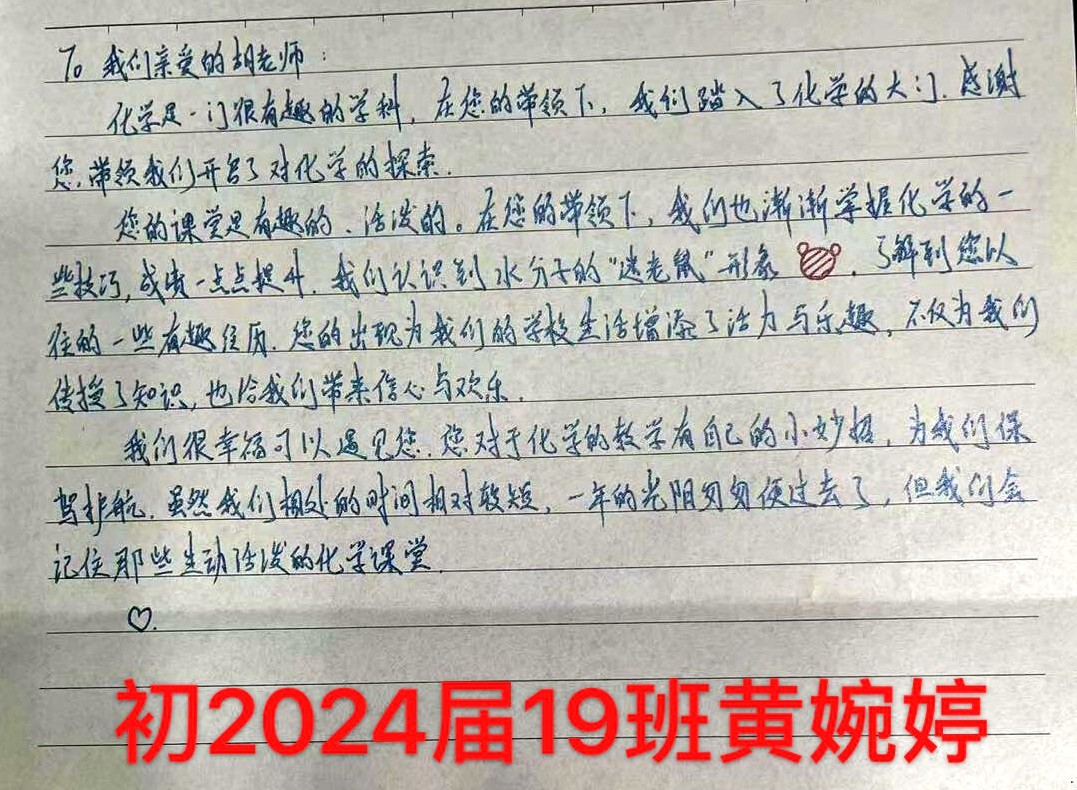 To 我们亲爱的胡老师:
化学是一门很有趣的学科, 在您的带领下, 我们踏入了化学的大门. 感谢
您, 带领我们开启了对化学的探索.
您的课堂是有趣的、活泼的。在您的带领下, 我们也渐渐掌握化学的一
些技巧, 成绩一点点提升. 我们认识到水分子的“迷老鼠”形象 . 了解到您以
往的一些有趣经历. 您的出现为我们的学校生活增添了活力与乐趣, 不仅为我们
传授了知识, 也给我们带来信心与欢乐.
我们很幸福可以遇见您. 您对于化学的教学有自己的小妙招, 为我们保
驾护航. 虽然我们相处的时间相对较短, 一年的光阴匆匆便过去了, 但我们会
记住那些生动活泼的化学课堂.
♡.
初2024届19班黄婉婷